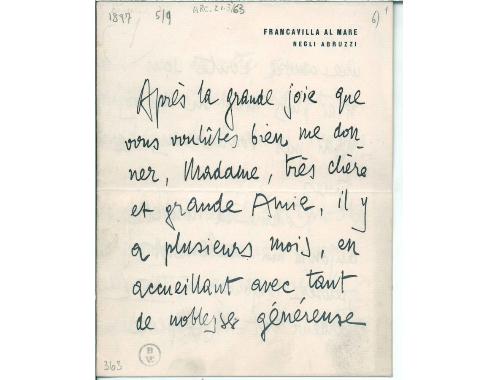 1897 5/9 ARC.21.3/63 6)
FRANCAVILLA AL MARE
NEGLI ABRUZZI
Après la grande joie que
vous voulûtes bien me don-
ner, Madame, très chère
et grande Amie, il y
a plusieurs mois, en
accueillant avec tant
de noblesse généreuse
363